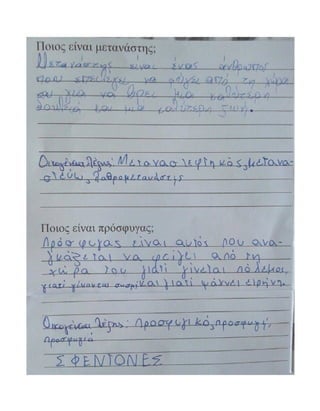 Ποιος είναι μετανάστης;
Μετανάστης είναι ένας άνθρωπος
που επιλέγει να φύγει από τη χώρα
του για να βρει μια καλύτερη
δουλειά και μια καλύτερη ζωή.
Οικογένεια λέξης: Μεταναστεφτικός, μετανα-
στεύω, λαθρομετανάστης
Ποιος είναι πρόσφυγας;
Πρόσφυγας είναι αυτός που ανα-
γκάζεται να φείγει από τη
χώρα του γιατί γίνεται πόλεμος,
γιατί γίνανται σισμοί και γιατί ψάχνει ειρήνη.
Οικογένεια λέξης: προσφυγικός, προσφυγή,
προσφυγιά
ΣΦΕΝΤΟΝΕΣ